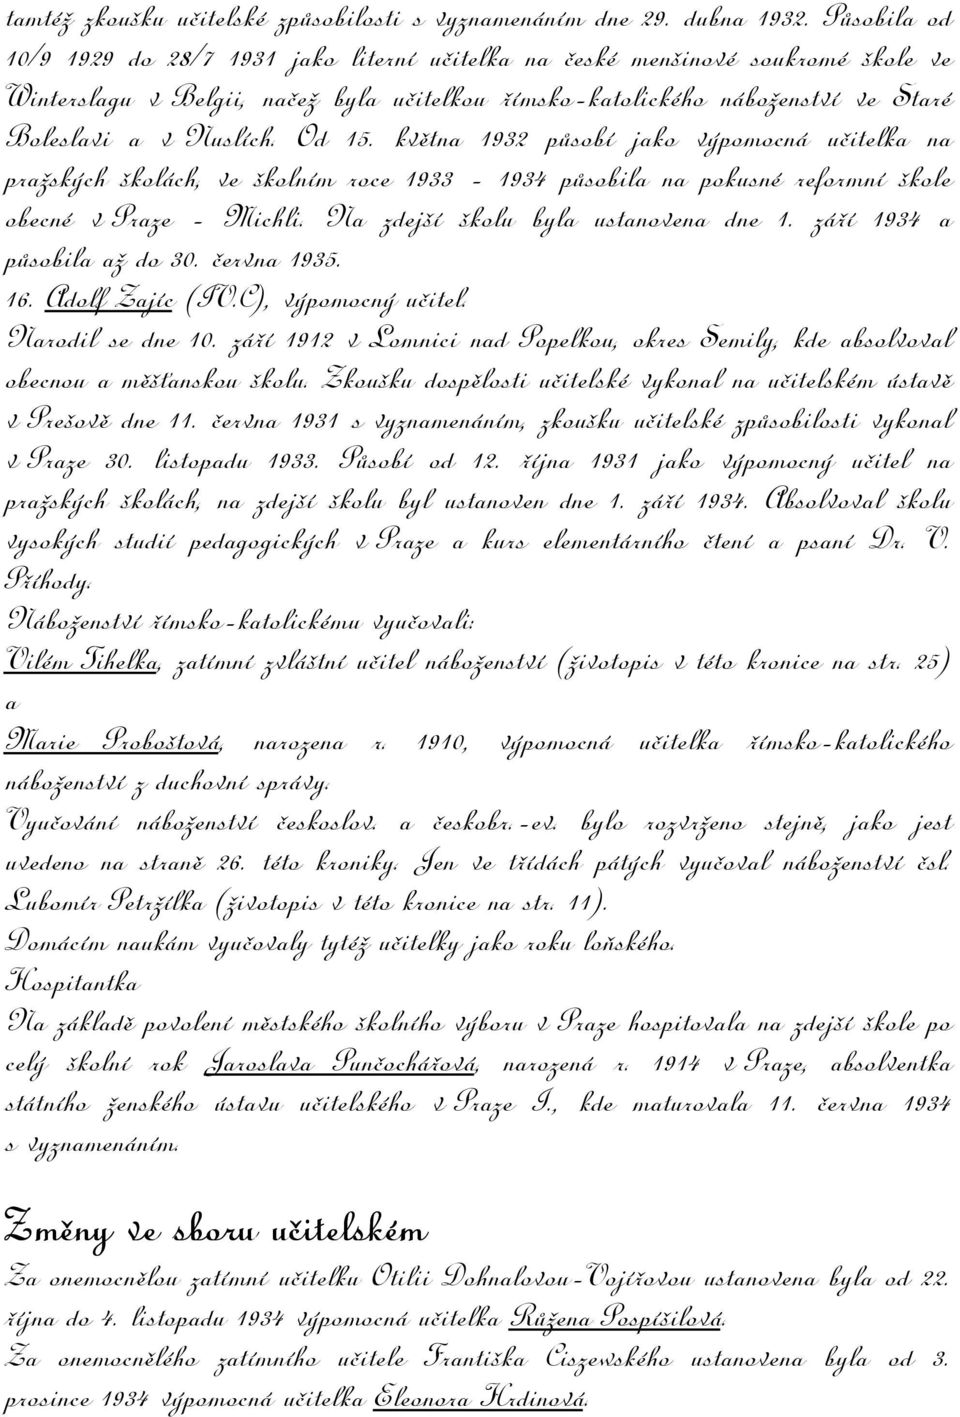 tamtéž zkoušku učitelské způsobilosti s vyznamenáním dne 29. dubna 1932. Působila od
10/9 1929 do 28/7 1931 jako literní učitelka na české menšinové soukromé škole ve
Winterslagu v Belgii, načež byla učitelkou římsko-katolického náboženství ve Staré
Boleslavi a v Nuslích. Od 15. května 1932 působí jako výpomocná učitelka na
pražských školách, ve školním roce 1933 - 1934 působila na pokusné reformní škole
obecné v Praze - Michli. Na zdejší školu byla ustanovena dne 1. září 1934 a
působila až do 30. června 1935.
16. Adolf Zajíc (IV.C), výpomocný učitel.
Narodil se dne 10. září 1912 v Lomnici nad Popelkou, okres Semily, kde absolvoval
obecnou a měšťanskou školu. Zkoušku dospělosti učitelské vykonal na učitelském ústavě
v Prešově dne 11. června 1931 s vyznamenáním, zkoušku učitelské způsobilosti vykonal
v Praze 30. listopadu 1933. Působí od 12. října 1931 jako výpomocný učitel na
pražských školách, na zdejší školu byl ustanoven dne 1. září 1934. Absolvoval školu
vysokých studií pedagogických v Praze a kurs elementárního čtení a psaní Dr. V.
Příhody.
Náboženství římsko-katolickému vyučovali:
Vilém Tihelka, zatímní zvláštní učitel náboženství (životopis v této kronice na str. 25)
a
Marie Proboštová, narozena r. 1910, výpomocná učitelka římsko-katolického
náboženství z duchovní správy.
Vyučování náboženství českoslov. a českobr.-ev. bylo rozvrženo stejně, jako jest
uvedeno na straně 26. této kroniky. Jen ve třídách pátých vyučoval náboženství čsl.
Lubomír Petržílka (životopis v této kronice na str. 11).
Domácím naukám vyučovaly tytéž učitelky jako roku loňského.
Hospitantka
Na základě povolení městského školního výboru v Praze hospitovala na zdejší škole po
celý školní rok Jaroslava Punčochářová, narozená r. 1914 v Praze, absolventka
státního ženského ústavu učitelského v Praze I., kde maturovala 11. června 1934
s vyznamenáním.
Změny ve sboru učitelském
Za onemocnělou zatímní učitelku Otilii Dohnalovou-Vojířovou ustanovena byla od 22.
října do 4. listopadu 1934 výpomocná učitelka Růžena Pospíšilová.
Za onemocnělého zatímního učitele Františka Ciszewského ustanovena byla od 3.
prosince 1934 výpomocná učitelka Eleonora Hrdinová.